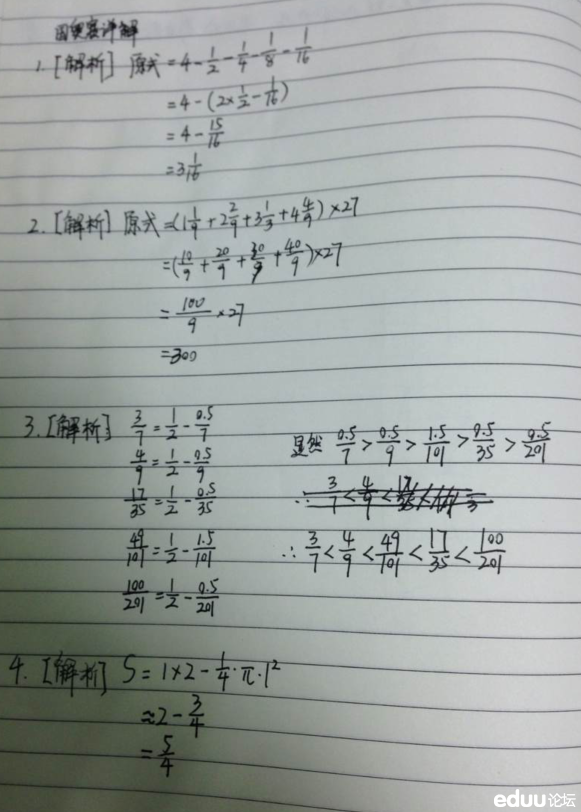 因奥赛详解
1.[解析] 原式=4-1/2-1/4-1/8-1/16
=4-(2×1/2-1/16)
=4-15/16
=3 1/16
2.[解析] 原式=(1 1/9+2 2/9+3 1/3+4 4/9)×27
=(10/9+20/9+30/9+40/9)×27
=100/9×27
=300
3.[解析] 3/7=1/2-0.5/7
4/9=1/2-0.5/9
17/35=1/2-0.5/35
49/101=1/2-1.5/101
100/201=1/2-0.5/201
显然 0.5/7>0.5/9>1.5/101>0.5/35>0.5/201
∴3/7<4/9<49/101<17/35<100/201
4.[解析] S=1×2-1/4·π·1²
≈2-3/4
=5/4
eduu论坛